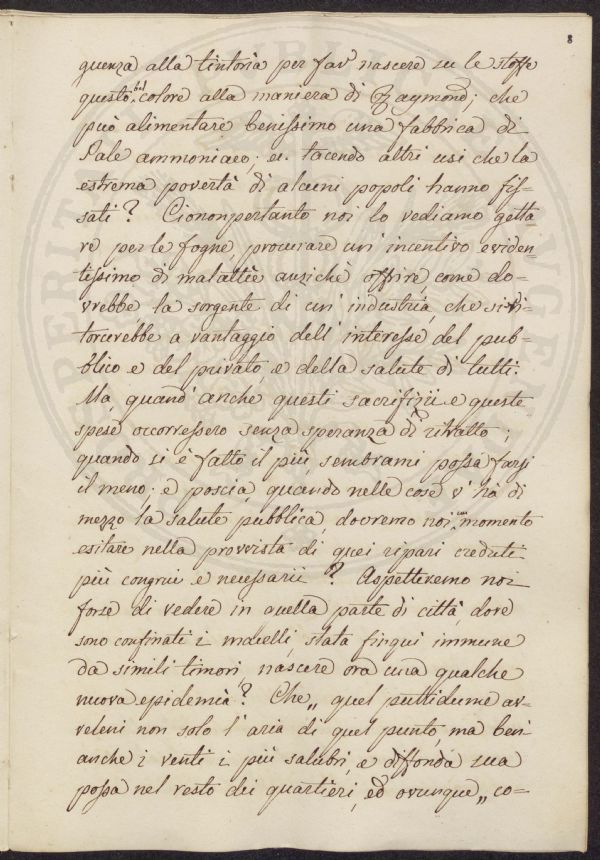 8
guenza alla tintoria per far nascere su le stoffe
questo bel colore alla maniera di Raymond; che
può alimentare benissimo una fabbrica di
Sale ammoniaco; e tacendo altri usi che la
estrema povertà di alcuni popoli hanno fis-
sati? Ciononpertanto noi lo vediamo getta
re per le fogne, procurare un' incentivo eviden-
tissimo di malattie anzichè offrire, come do-
vrebbe, la sorgente di un' industria, che si ri-
torcerebbe a vantaggio dell' interesse del pub-
blico e del privato, e della salute di tutti.
Ma, quand' anche questi sacrifizii e queste
spese occorressero senza speranza di ritratto;
quando si è fatto il più, sembrami possa farsi
il meno: e poscia, quando nelle cose v' hà di
mezzo la salute pubblica, dovremo noi un momento
esitare nella provvista di quei ripari creduti
più congrui e necessarii? Aspetteremo noi
forse di vedere in quella parte di città, dove
sono confinati i macelli, stata finqui immune
da simili timori, nascere ora una qualche
nuova epidemia? Che „ quel puttidume av-
veleni non solo l' aria di quel punto, ma ben'
anche i venti i più salubri, e diffonda sua
possa nel resto dei quartieri, ed ovunque „ co-